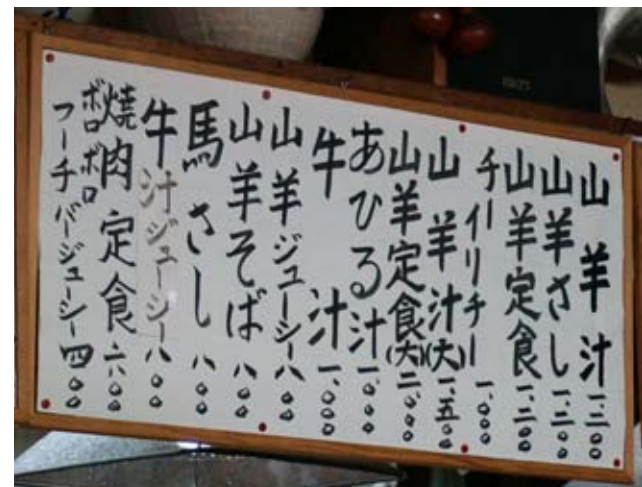 山羊汁 一、二〇〇
山羊さし 一、二〇〇
山羊定食 一、二〇〇
チーイリチー 一、〇〇〇
山羊汁(大) 一、五〇〇
山羊定食(大) 二、〇〇〇
あひる汁 一、〇〇〇
牛汁 一、〇〇〇
山羊ジューシー 八〇〇
山羊そば 八〇〇
馬さし 八〇〇
牛汁ジューシー 八〇〇
焼肉定食 六〇〇
ボロボロ
フーチバージューシー 四〇〇